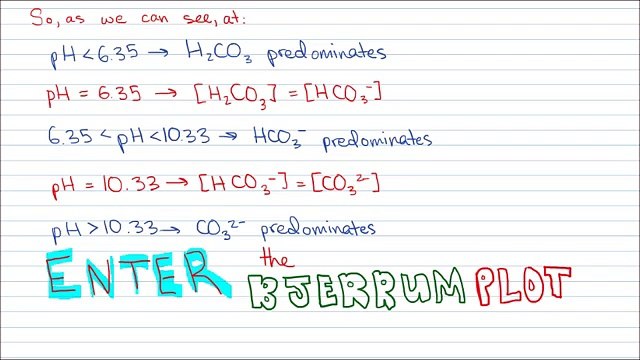 So, as we can see, at:
pH < 6.35 → H₂CO₃ predominates
pH = 6.35 → [H₂CO₃] = [HCO₃⁻]
6.35 < pH < 10.33 → HCO₃⁻ predominates
pH = 10.33 → [HCO₃⁻] = [CO₃²⁻]
pH > 10.33 → CO₃²⁻ predominates
ENTER the
BJERRUM PLOT